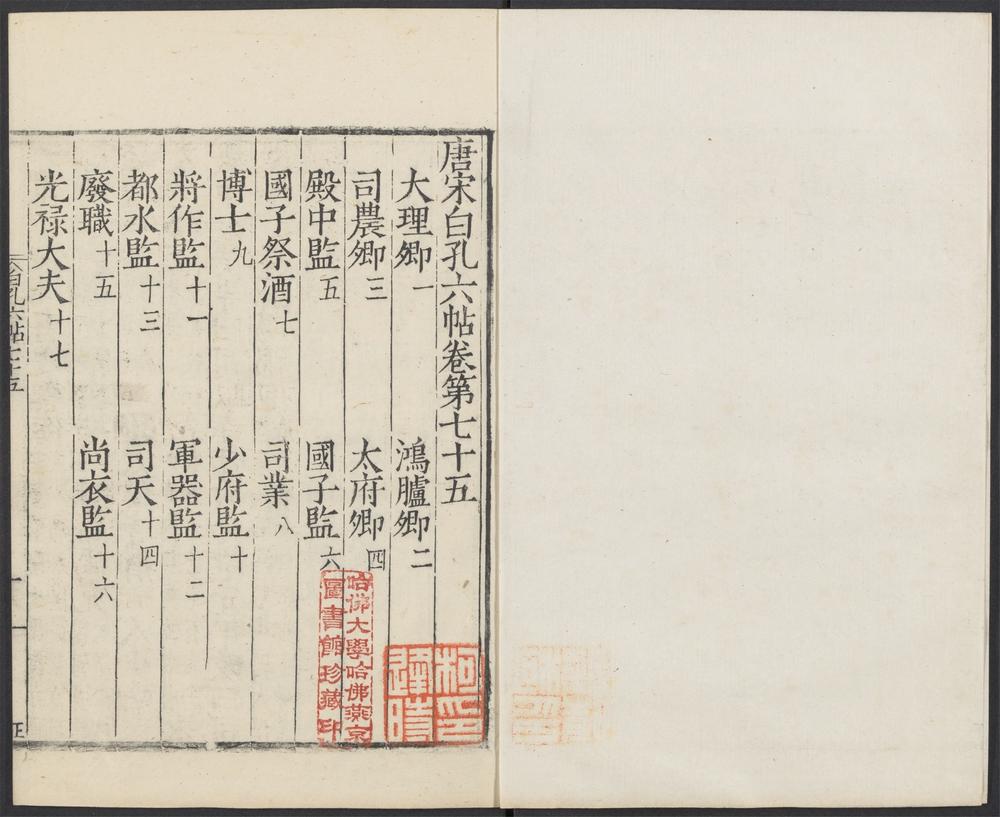 唐宋白孔六帖卷第七十五
大理卿一　鴻臚卿二
司農卿三　太府卿四
殿中監五　國子監六
國子祭酒七　司業八
博士九　少府監十
將作監十一　軍器監十二
都水監十三　司天十四
廢職十五　尚衣監十六
光祿大夫十七
白孔六帖七十五
一
哈佛大學哈佛燕京
圖書館珍藏印
柯逢時印